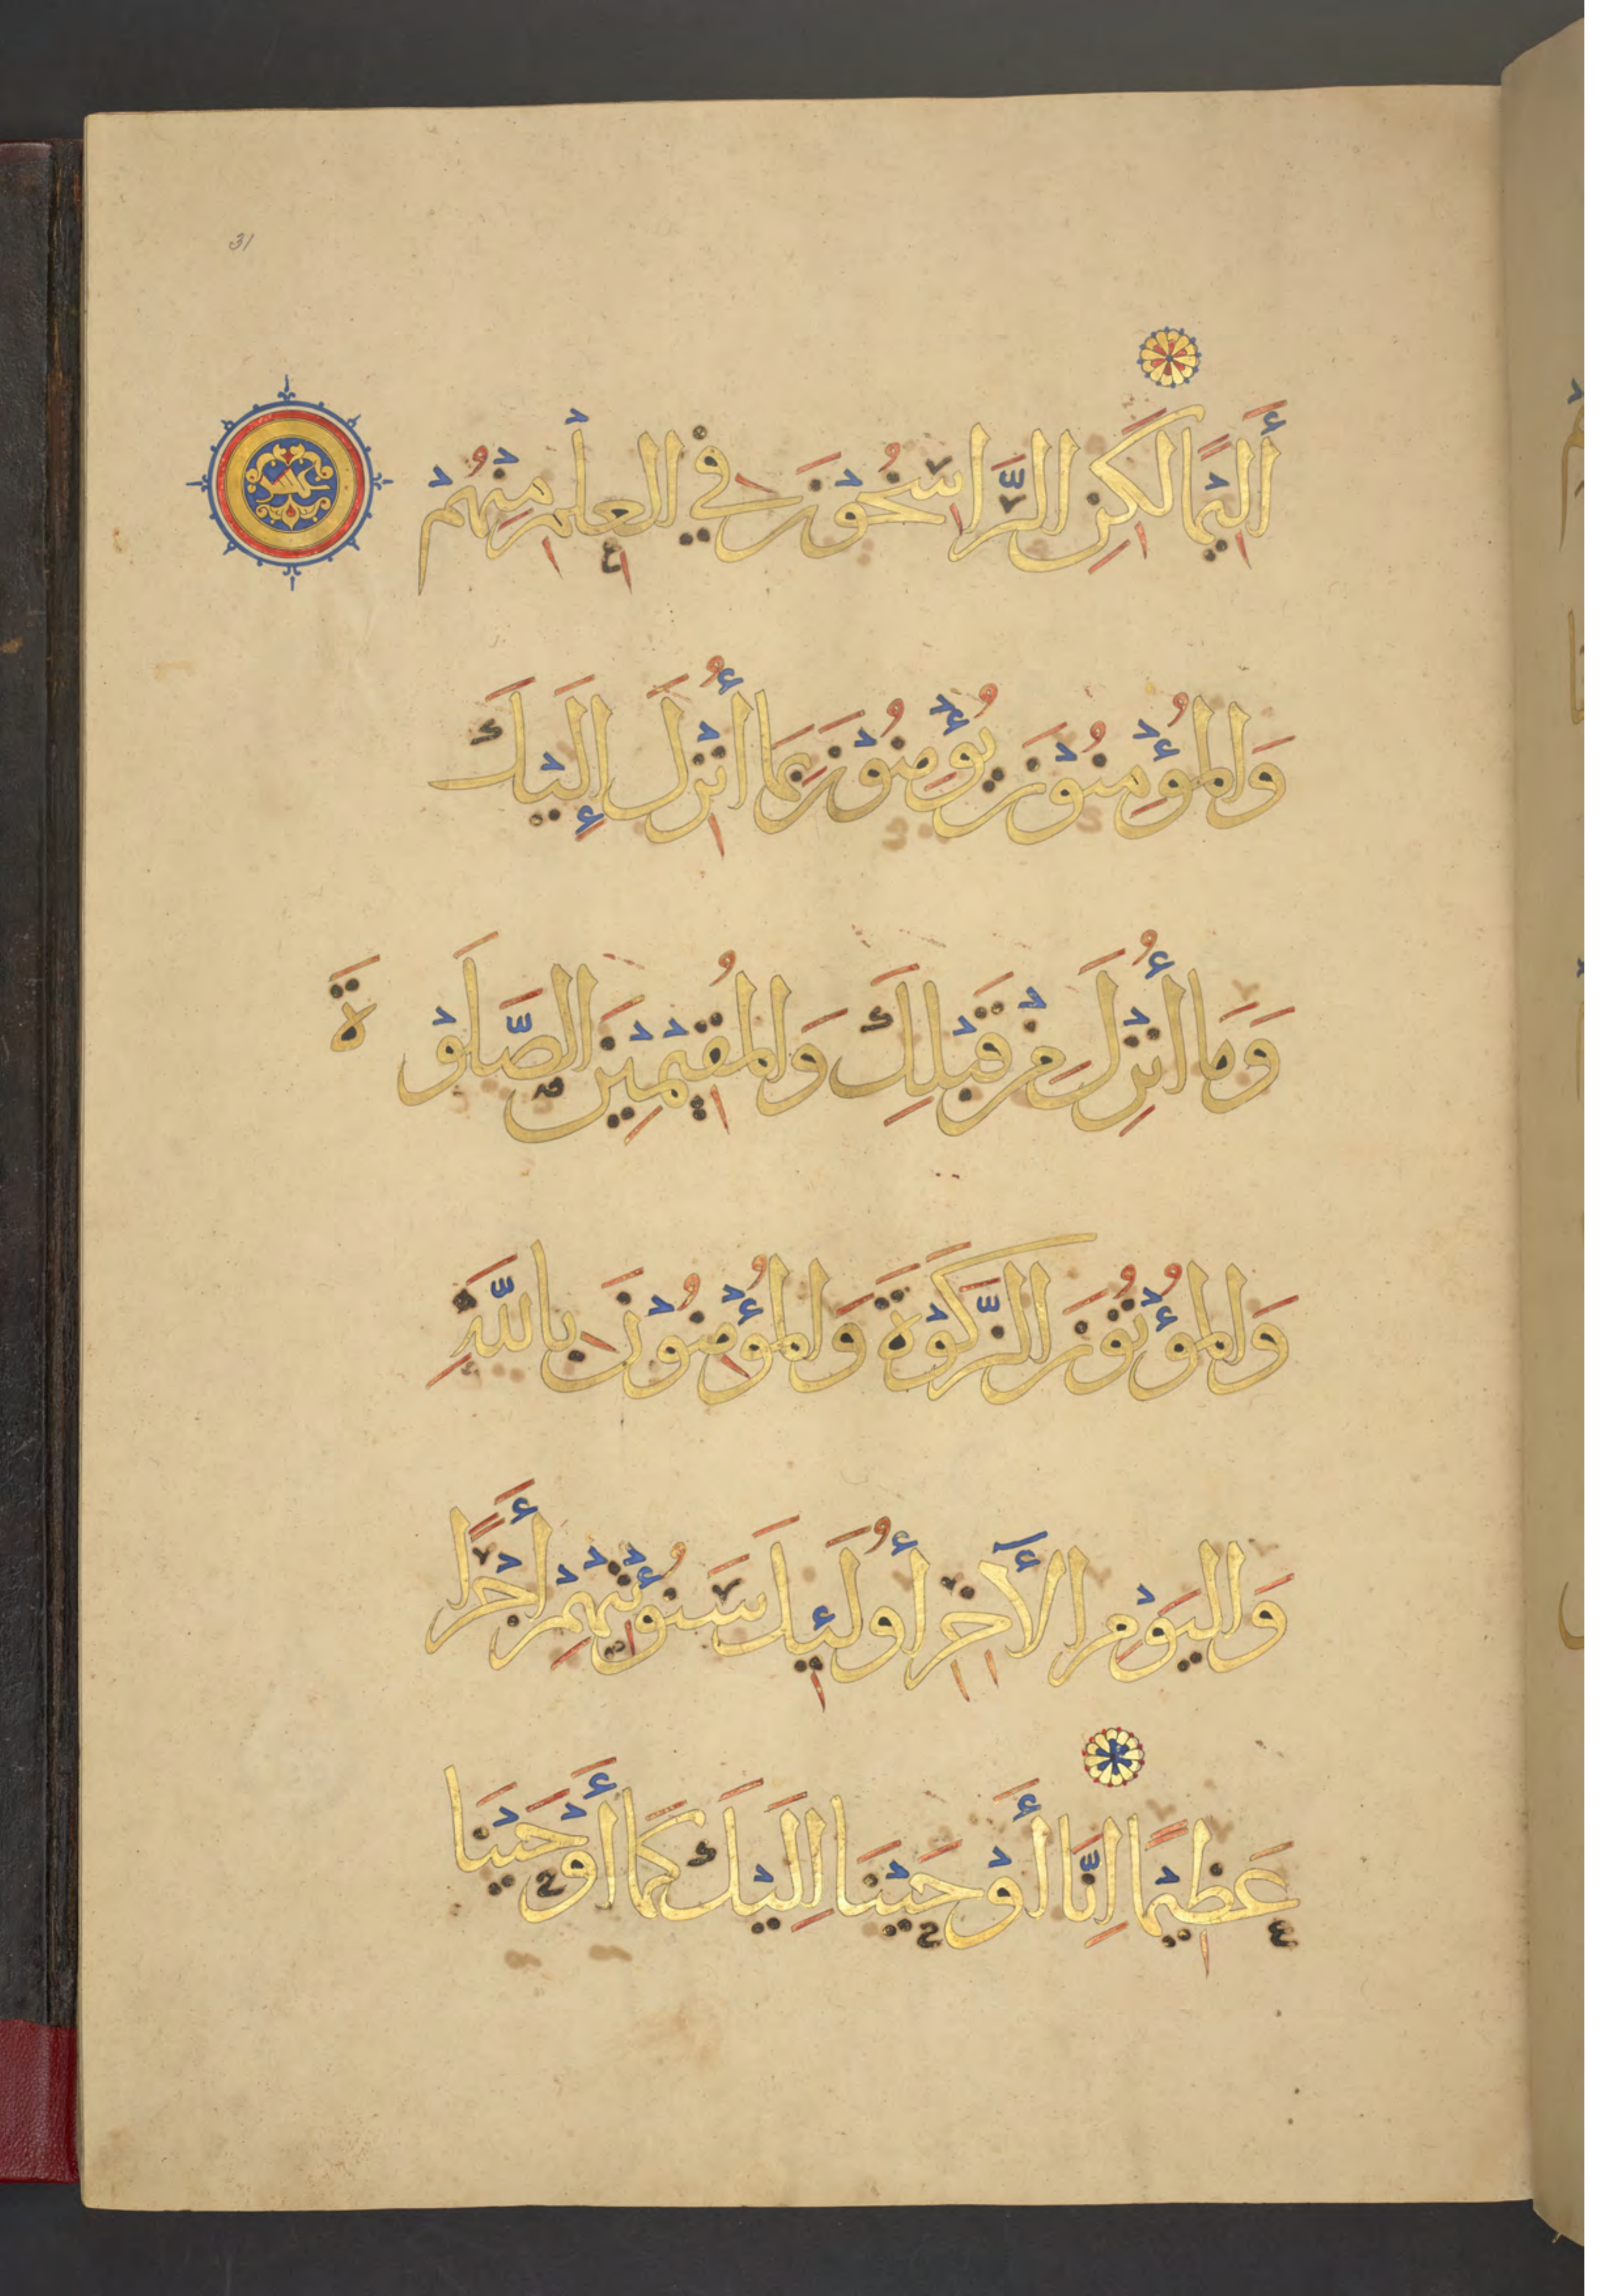 31
أَلِيمًا لَكِنِ الرَّاسِخُونَ فِي الْعِلْمِ مِنْهُمْ
وَالْمُؤْمِنُونَ يُؤْمِنُونَ بِمَا أُنْزِلَ إِلَيْكَ
وَمَا أُنْزِلَ مِنْ قَبْلِكَ وَالْمُقِيمِينَ الصَّلَوْةَ
وَالْمُؤْتُونَ الزَّكَوْةَ وَالْمُؤْمِنُونَ بِاللَّهِ
وَالْيَوْمِ الْآخِرِ أُولَئِكَ سَنُؤْتِيهِمْ أَجْرًا
عَظِيمًا إِنَّا أَوْحَيْنَا إِلَيْكَ كَمَا أَوْحَيْنَا